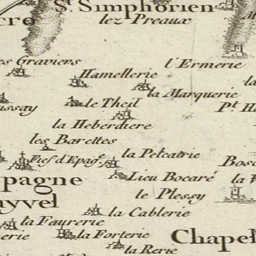 St. Symphorien
cro
lez Preaux
es Graviers
l'Ermerie
Hamellerie
la Marquerie
ussay
le Theil
Pt. H
la Heberdiere
les Barettes
la Pelcatrie
Bos
Fief d'Epag
pagne
Lieu Bocaré
la F
ayvel
le Plessy
la Cablerie
la Faurerie
erie
la Forterie
Chapel
la Rerie